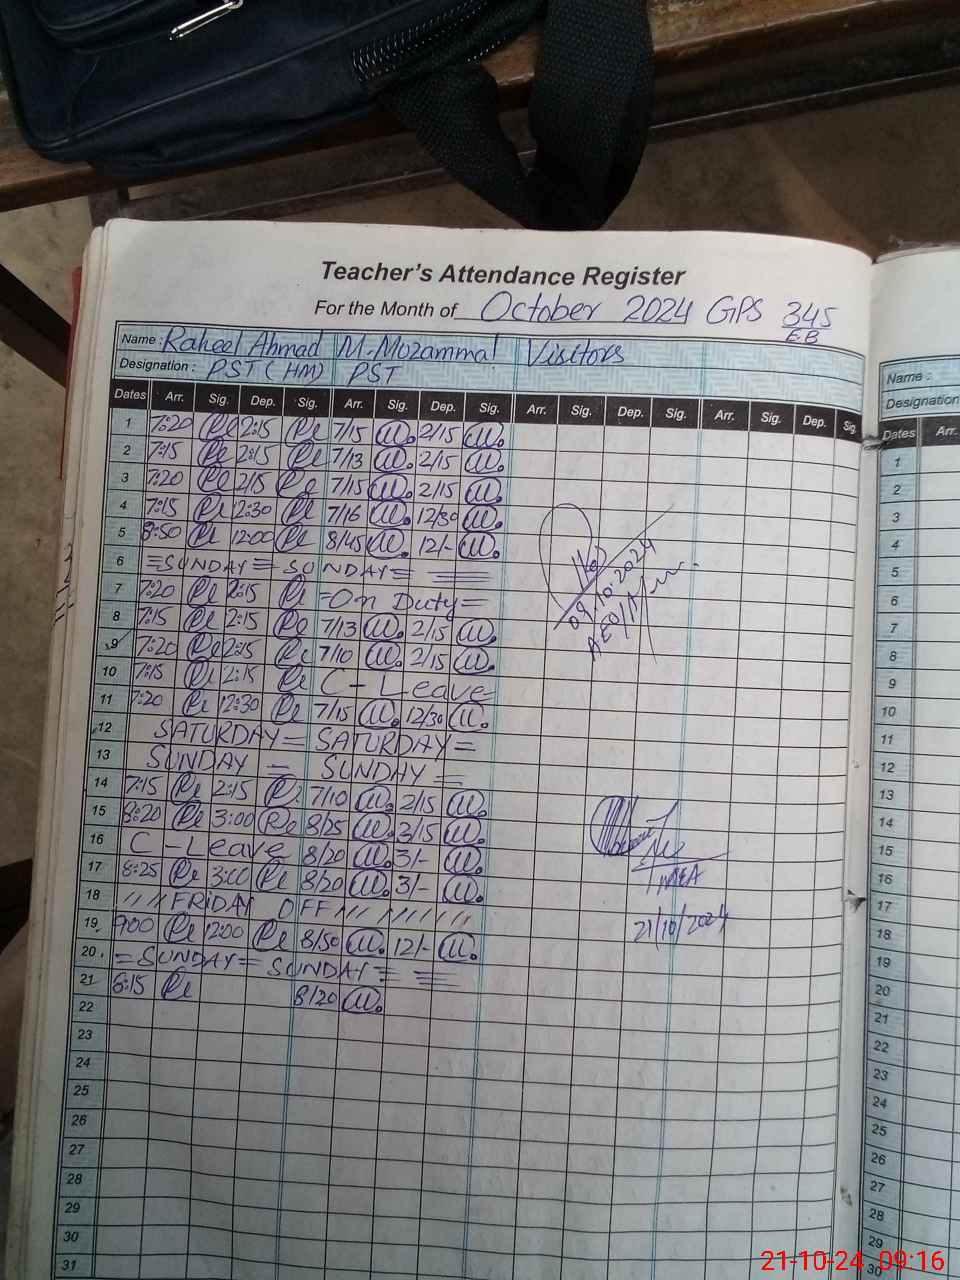 Teacher's Attendance Register
For the Month of October 2024 GPS 345
E.B
Name : Raheel Ahmad M. Mozammal Visitors
Designation : PST (HM) PST
Dates Arr. Sig. Dep. Sig. Arr. Sig. Dep. Sig. Arr. Sig. Dep. Sig. Arr. Sig. Dep. Sig.
1 7:20 2:15 7/15 2/15
2 7:15 2:15 7/13 2/15
3 7:20 2/15 7/15 2/15
4 7:15 12:30 7/16 12/30
5 8:50 12:00 8/45 12/-
6 = SUNDAY = SUNDAY =
7 7:20 2:15 = On Duty =
8 7:15 2:15 7/13 2/15
9 7:20 2:15 7/10 2/15
10 7:15 2:15 C - Leave
11 7:20 12:30 7/15 12/30
12 SATURDAY = SATURDAY =
13 SUNDAY = SUNDAY =
14 7:15 2:15 7/10 2/15
15 8:20 3:00 8/25 3/15
16 C - Leave 8/20 3/-
17 8:25 3:00 8/20 3/-
18 FRIDAY OFF
19 9:00 12:00 8/50 12/-
20 = SUNDAY = SUNDAY =
21 8:15 8/20
22
23
24
25
26
27
28
29
30
31
09.10.2024
AEO
21/10/2024
Name :
Designation
Dates Arr.
1
2
3
4
5
6
7
8
9
10
11
12
13
14
15
16
17
18
19
20
21
22
23
24
25
26
27
28
29
30
21-10-24 09:16